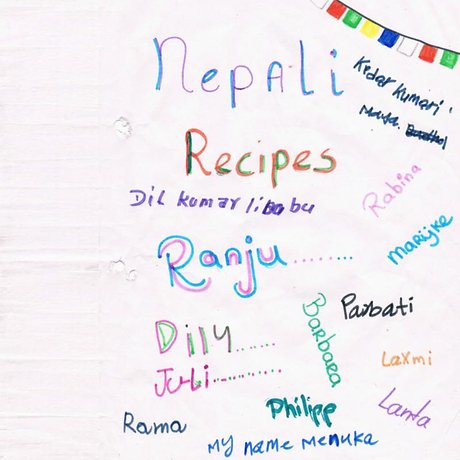 Nepali
Kedar Kumari
Maya.
Recipes
Rabina
Dil Kumar
Marijke
Ranju.........
Barbara
Parbati
Dily.......
Laxmi
Juli...........
Philipp
Rama
My name Menuka